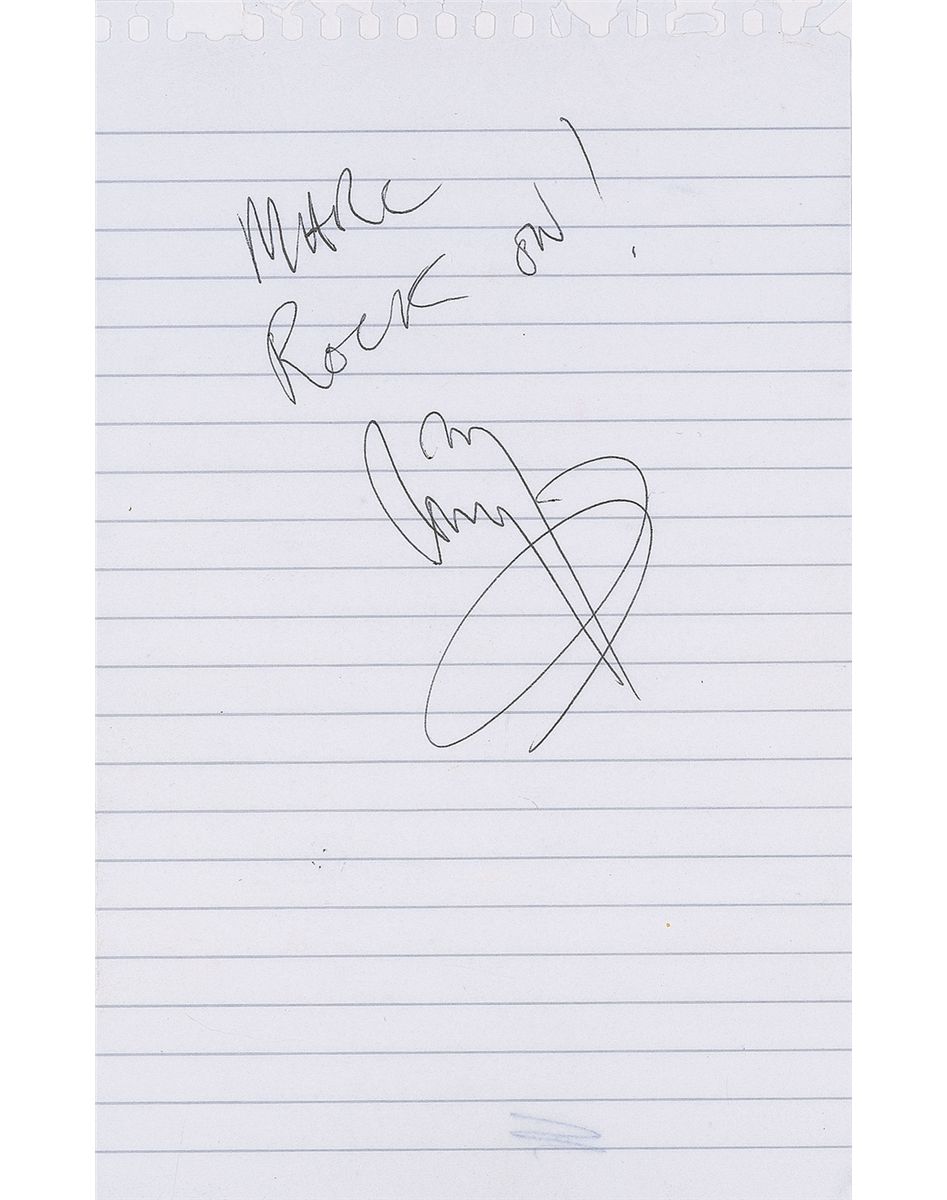 MARC
ROCK ON!